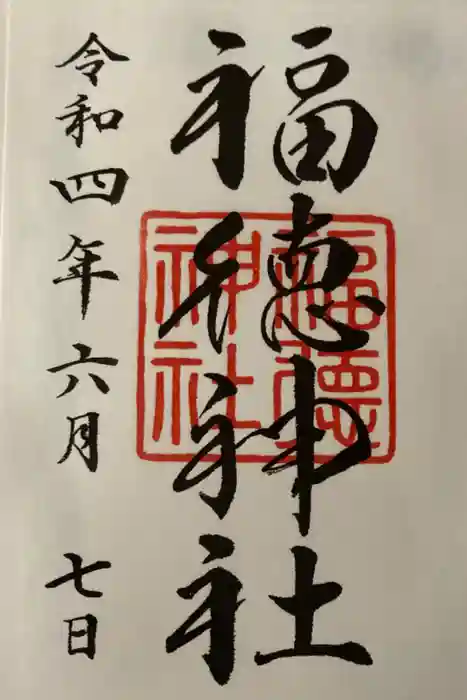 福徳神社
福德神社
令和四年六月七日